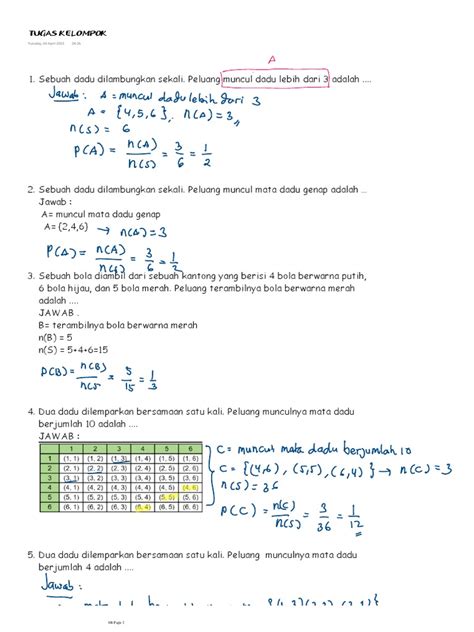 TUGAS KELOMPOK
A
1. Sebuah dadu dilambungkan sekali. Peluang muncul dadu lebih dari 3 adalah ....
Jawab : A = muncul dadu lebih dari 3
A = {4,5,6}, n(A) = 3,
n(S) = 6
P(A) = n(A)/n(S) = 3/6 = 1/2
2. Sebuah dadu dilambungkan sekali. Peluang muncul mata dadu genap adalah ...
Jawab :
A= muncul mata dadu genap
A= {2,4,6} → n(A) = 3
P(A) = n(A)/n(S) = 3/6 = 1/2
3. Sebuah bola diambil dari sebuah kantong yang berisi 4 bola berwarna putih,
6 bola hijau, dan 5 bola merah. Peluang terambilnya bola berwarna merah
adalah ....
JAWAB .
B= terambilnya bola berwarna merah
n(B) = 5
n(S) = 5+4+6=15
P(B) = n(B)/n(S = 5/15 = 1/3
4. Dua dadu dilemparkan bersamaan satu kali. Peluang munculnya mata dadu
berjumlah 10 adalah ....
JAWAB :
1 2 3 4 5 6
1 (1, 1) (1, 2) (1, 3) (1, 4) (1, 5) (1, 6)
2 (2, 1) (2, 2) (2, 3) (2, 4) (2, 5) (2, 6)
3 (3, 1) (3, 2) (3, 3) (3, 4) (3, 5) (3, 6)
4 (4, 1) (4, 2) (4, 3) (4, 4) (4, 5) (4, 6)
5 (5, 1) (5, 2) (5, 3) (5, 4) (5, 5) (5, 6)
6 (6, 1) (6, 2) (6, 3) (6, 4) (6, 5) (6, 6)
C = muncul mata dadu berjumlah 10
C = {(4,6), (5,5), (6,4)} → n(C) = 3
n(S) = 36
P(C) = n(C)/n(S) = 3/36 = 1/12
5. Dua dadu dilemparkan bersamaan satu kali. Peluang munculnya mata dadu
berjumlah 4 adalah ....
Jawab :